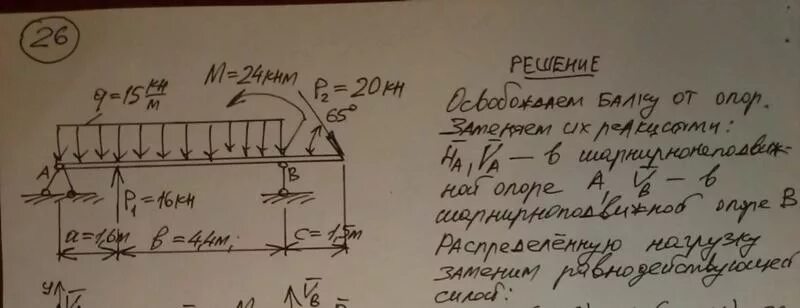 26
q=15 кн/м
M=24кнм
P₂=20кн
65°
A
B
P₁=16кн
a=1,6м
в=4,4м;
c=1,5м
y
V̄_B
РЕШЕНИЕ
Освобождаем балку от опор.
Заменяем их реакциями:
H̄_A, V̄_A — в шарнирнонеподвиж-
ной опоре A, V̄_B — в
шарнирноподвижной опоре B
Распределённую нагрузку
заменим равнодействующей
силой: